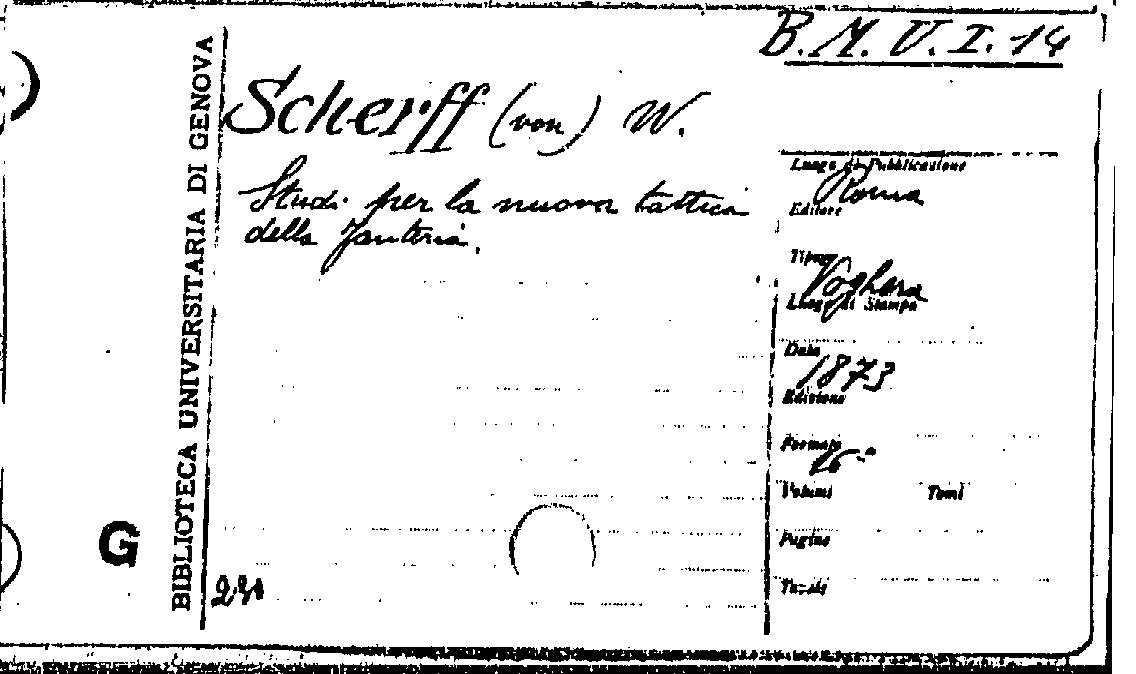 B.M. V. I. 14
BIBLIOTECA UNIVERSITARIA DI GENOVA
Scherff (von) W.
Studi per la nuova tattica
della fanteria.
Luogo di Pubblicazione
Roma
Editore
Tipogr.
Voghera
Luogo di Stampa
Data
1873
Edizione
Formato
16°
Volumi Tomi
Pagine
Tavole
G